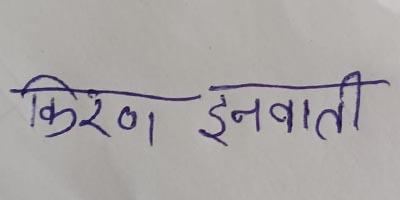 किरण इनवाती